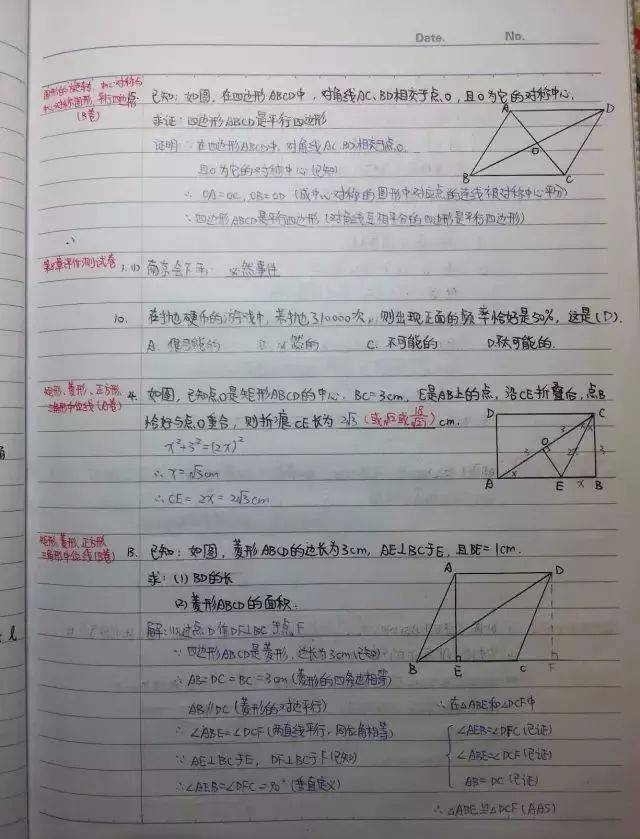 Date. No.
图形的旋转,中心对称与
中心对称图形,平行四边形
(B卷)
已知:如图,在四边形ABCD中,对角线AC、BD相交于点O,且O为它的对称中心.
求证:四边形ABCD是平行四边形
证明:∵在四边形ABCD中,对角线AC、BD相交于点O.
且O为它的对称中心(已知)
∴OA=OC,OB=OD(成中心对称的图形中对应点的连线被对称中心平分)
∴四边形ABCD是平行四边形(对角线互相平分的四边形是平行四边形)
A D O B C
第8章 测试卷
1.(1) 南京会下雨: 必然事件
10. 在抛硬币的游戏中,若抛了10000次,则出现正面的频率恰好是50%,这是(D).
A. 很可能的 B. 必然的 C. 不可能的 D.不太可能的.
矩形、菱形、正方形、
三角形中位线(A卷)
4. 如图,已知点O是矩形ABCD的中心,BC=3cm,E是AB上的点,沿CE折叠后,点B
恰好与点O重合,则折痕CE长为2√3(或√12或)cm.
x²+3²=(2x)²
∴x=√3cm
∴CE=2x=2√3cm
D C O 3 3 2x 3 A x E x B
矩形、菱形、正方形、
三角形中位线(B卷)
13. 已知:如图,菱形ABCD的边长为3cm,AE⊥BC于E,且BE=1cm.
求:(1)BD的长
(2)菱形ABCD的面积.
解:(1)过点D作DF⊥BC于点F
∵四边形ABCD是菱形,边长为3cm(已知)
∴AB=DC=BC=3cm(菱形的四条边相等)
AB∥DC(菱形的对边平行)
∴∠ABE=∠DCF(两直线平行,同位角相等)
∵AE⊥BC于E,DF⊥BC于F(已知)
∴∠AEB=∠DFC=90°(垂直定义)
A D B E C F
∴在△ABE和△DCF中
∠AEB=∠DFC(已证)
∠ABE=∠DCF(已证)
AB=DC(已证)
∴△ABE≌△DCF(AAS)